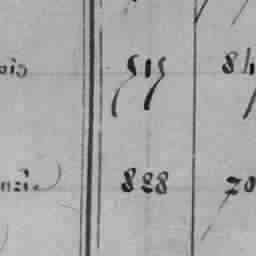 ois 515 84
nzi. 828 70